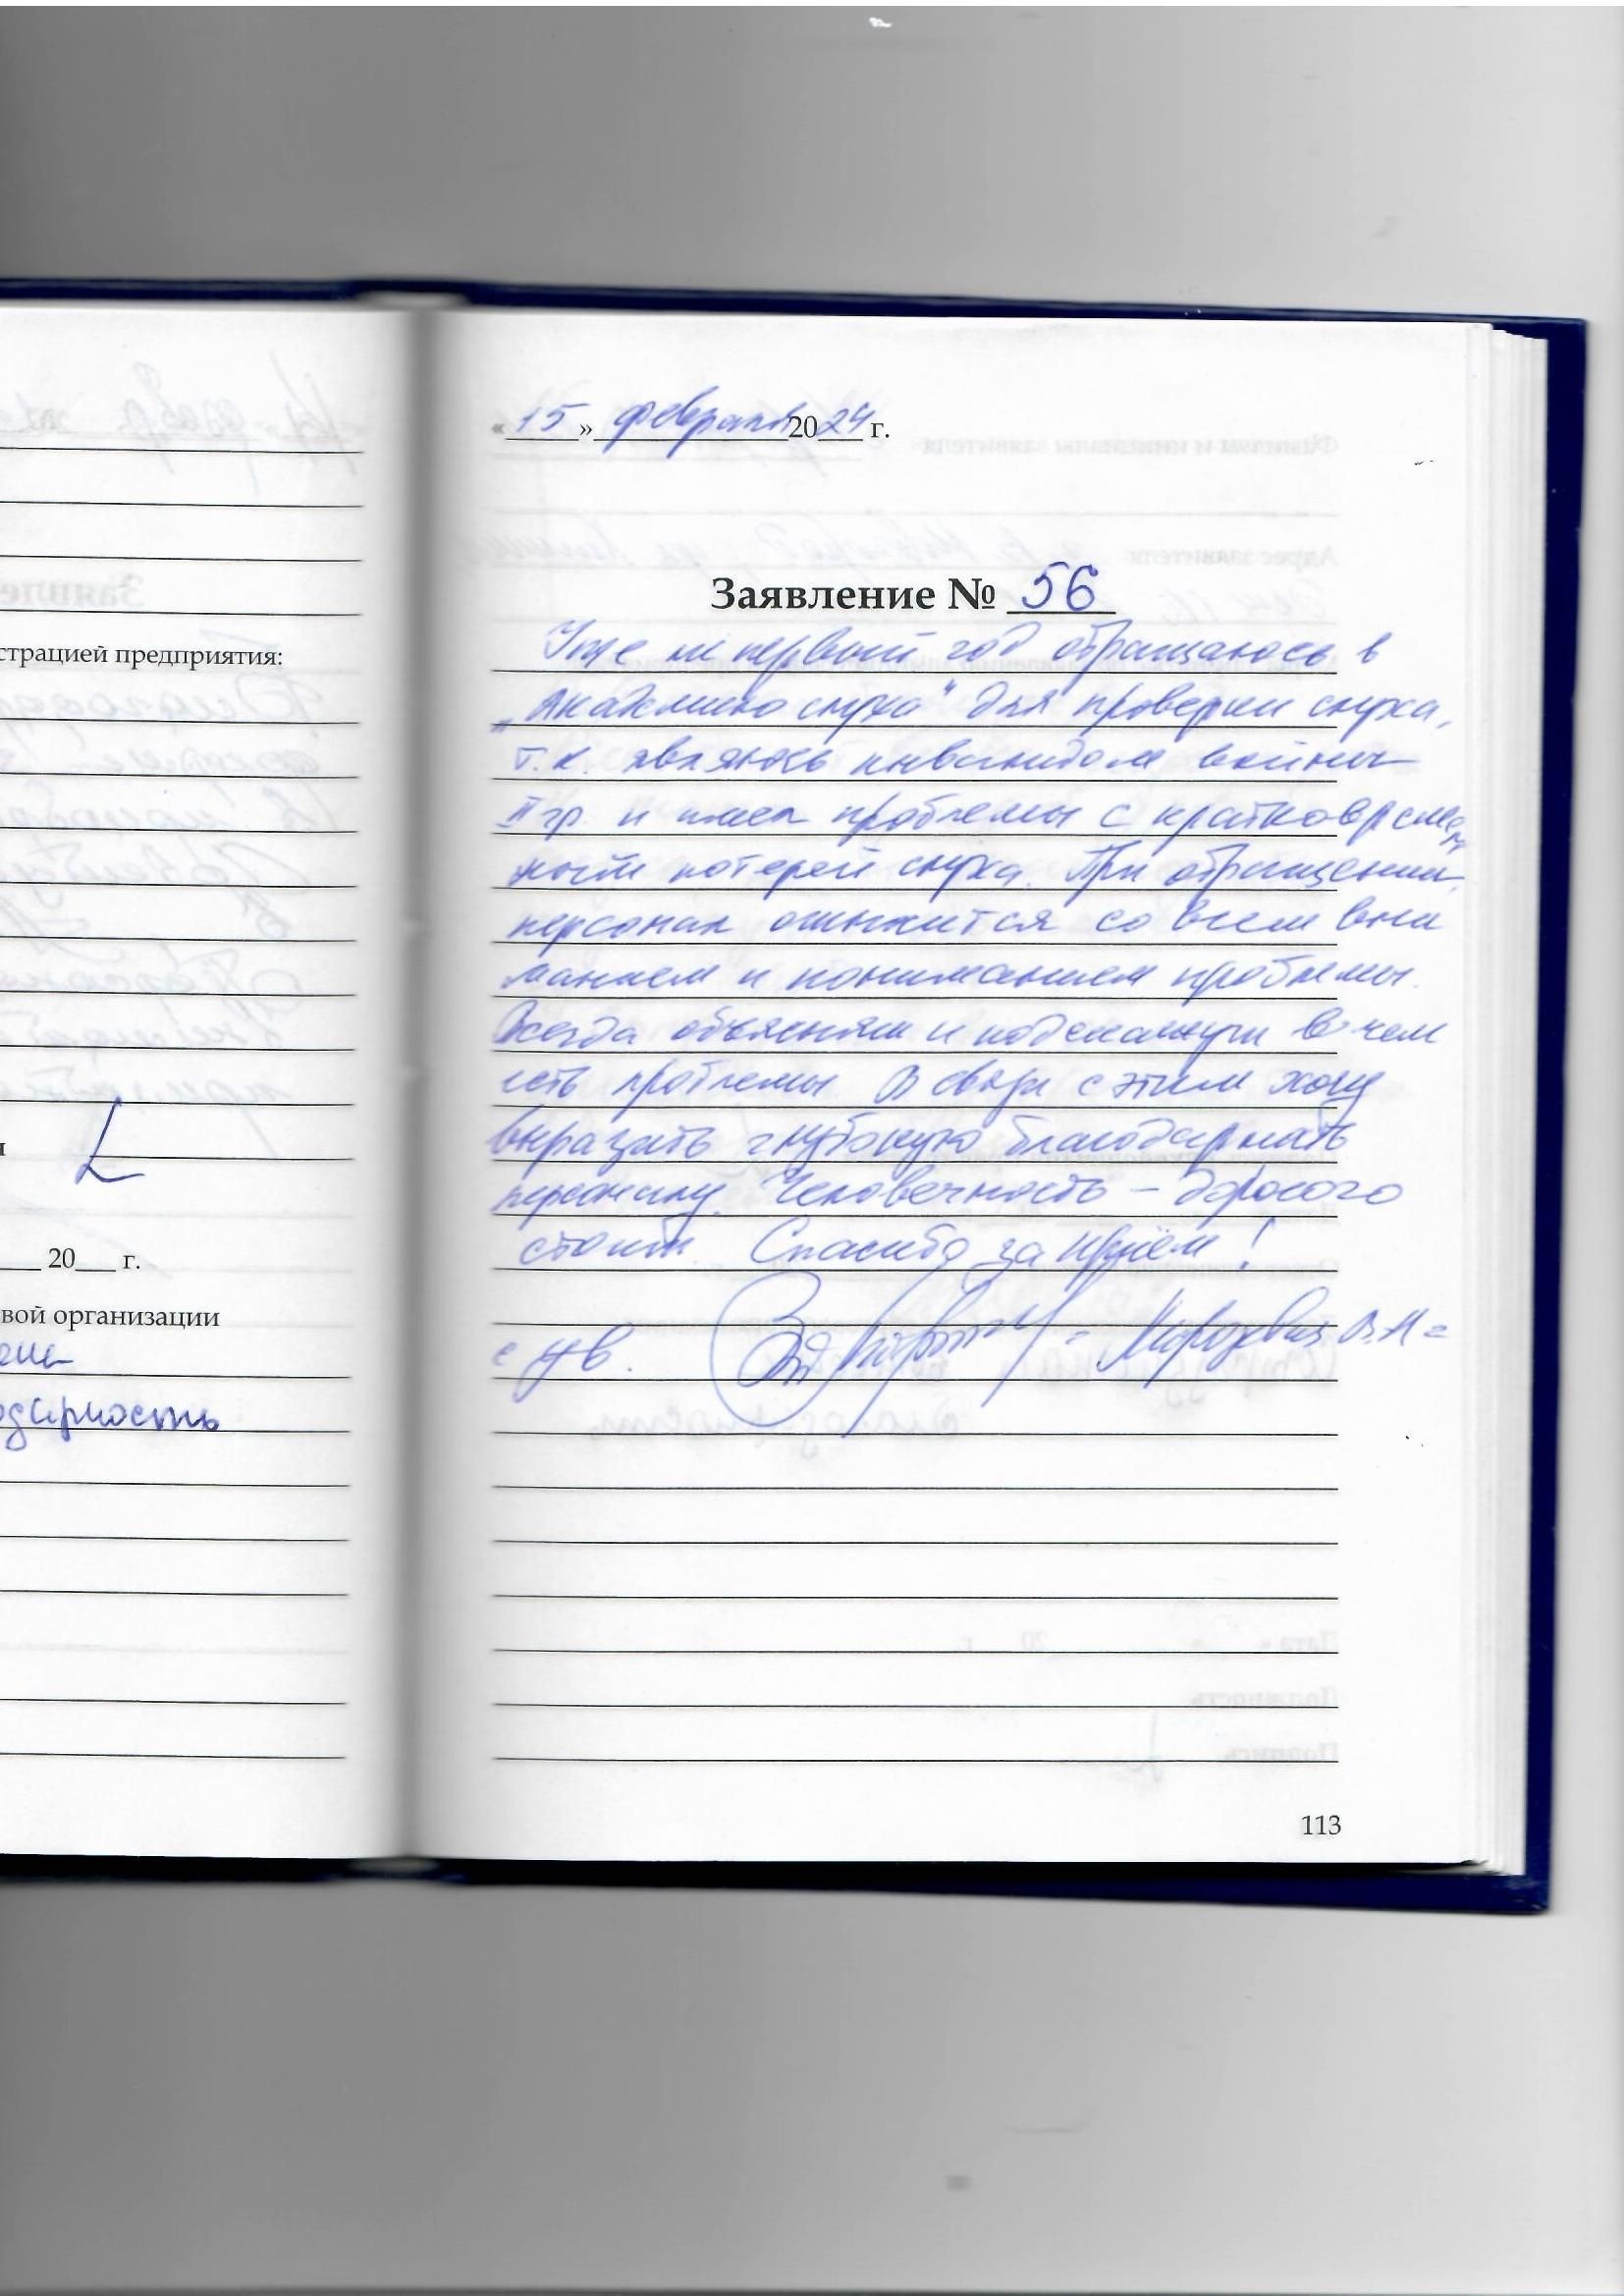 страцией предприятия:
20 г.
вой организации
дарность
«15» февраля 2024 г.
Заявление № 56
Уже не первый год обращаюсь в
„Академию слуха" для проверки слуха,
т.к. являюсь инвалидом войны
II гр. и имею проблемы с кратковремен
ной потерей слуха. При обращении
персонал относится со всем вни
манием и пониманием проблемы.
Всегда объяснят и подскажут в чем
есть проблемы. В связи с этим хочу
выразить глубокую благодарность
персоналу. Человечность – дорогого
стоит. Спасибо за приём!
с ув.
113